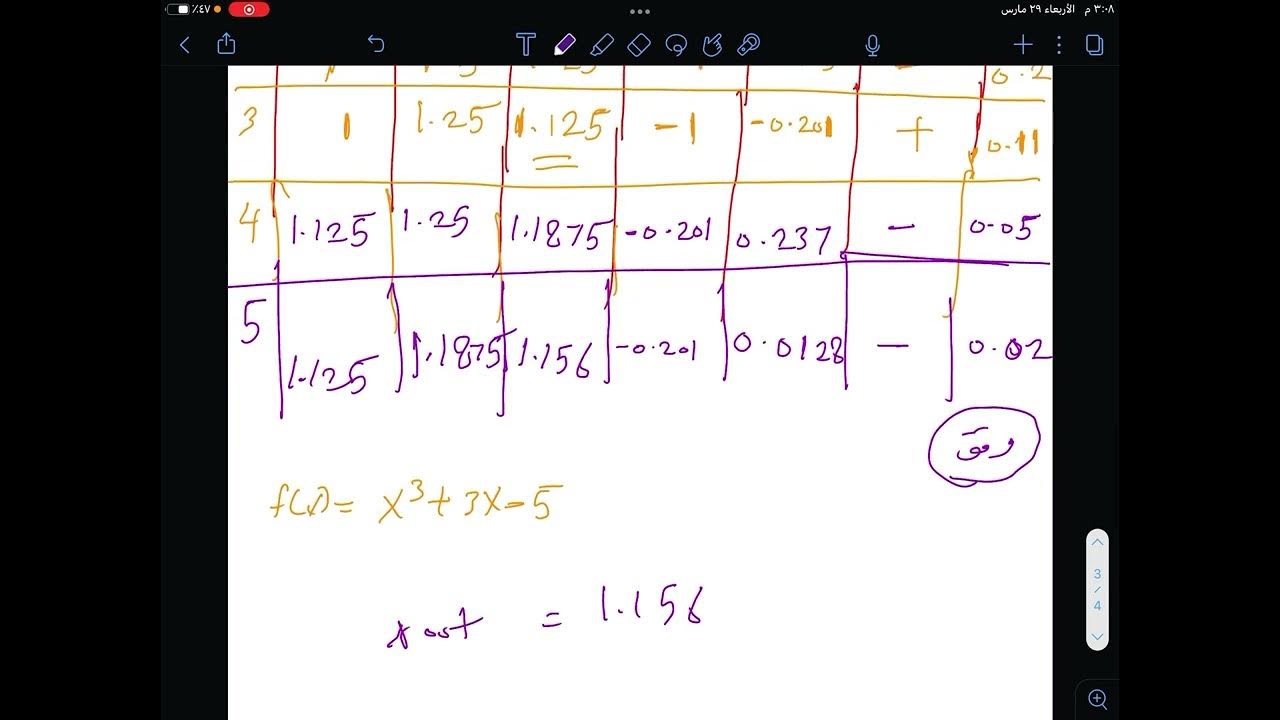 ٪٤٧ ٣:٠٨ م الأربعاء ٢٩ مارس
0.2
3 1 1.25 1.125 -1 -0.201 + 0.11
4 1.125 1.25 1.1875 -0.201 0.237 - 0.05
5 1.125 1.1875 1.156 -0.201 0.0128 - 0.02
f(x)= x³+3x-5
root = 1.156
3
/
4